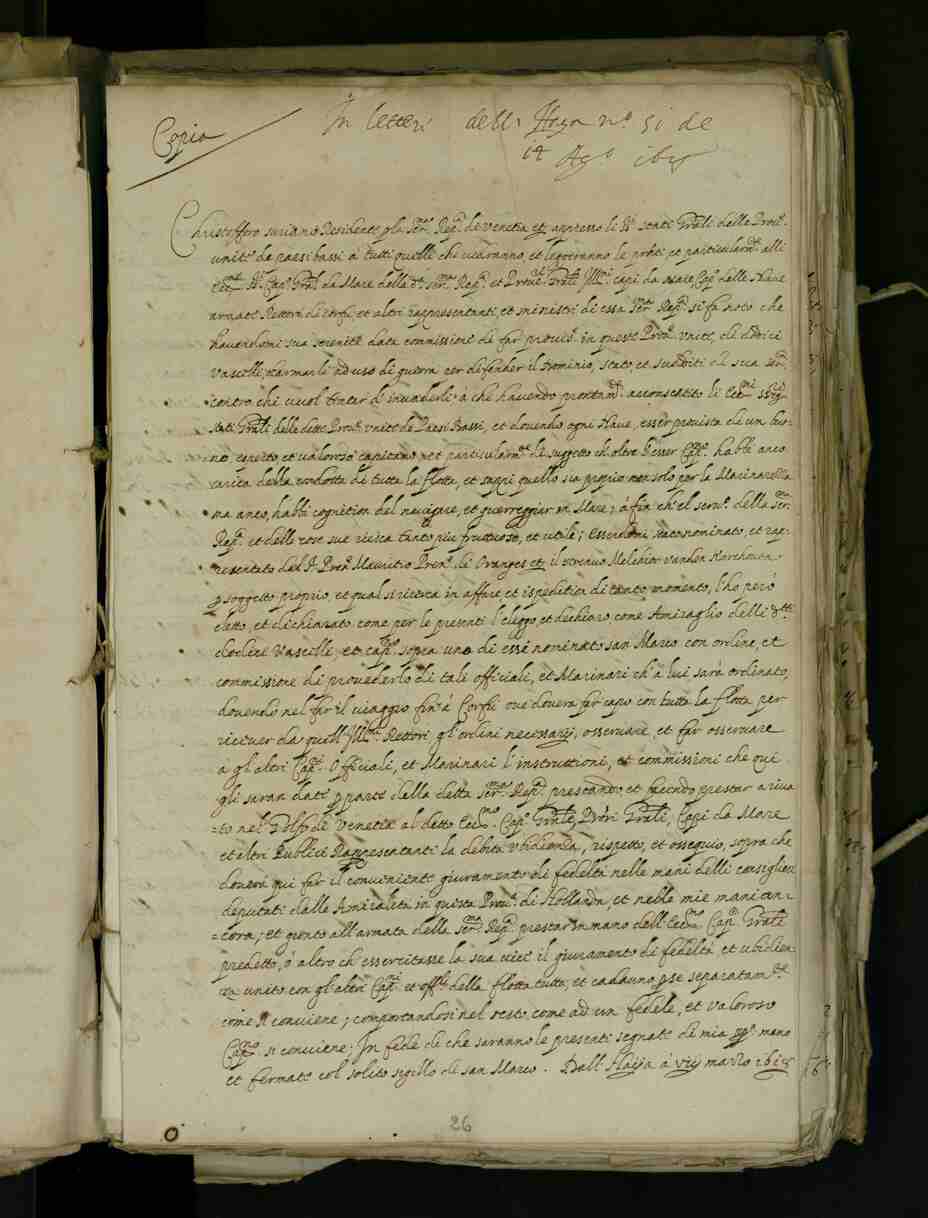 Copia
In lettere dell'Haya n.º 51 de
14 Ag.º 1618
Christofforo suriano Residente p la Ser.ma Rep.ca de Venetia etc. appresso li SS.ri stati Grāli delle Prov.e
unite de paesi bassi a tutti quelli che vedranno, et legeranno le pnti et particolarm.te alli
Ecc.mo S.r Cap.o Grāl da Mare della d.ta Ser.ma Rep.ca et Prove.r Grāle Ill.mi capi da mare Cap.i delle Nave
armate Rettori di corfù, et altri rappresentanti, et ministri di essa Ser.ma Rep.ca si fa noto che
havendomi sua serenità data commissione de far provis.e in queste Prov.e unite, de dodeci
vascelli, et armarli ad uso di guerra per difender il Dominio, stato, et sudditi di sua ser.tà
contro chi vuol tentar d'invaderli à che havendo prontam.te acconsentito li Ecc.mi SS.ri
stati Grāli delle dette Prov.e unite de Paesi Bassi, et dovendo ogni Nave, esser provista di un buo-
no esperto, et valoroso capitano, et particolarm.te de suggetto ch'oltre l'esser Cap.o habbi anco
carica della condotta di tutta la flotta, et sappi quello sia proprio non solo per la Marinarezza
ma anco, habbi cognition del navigare, et guerreggiar in Mare; à fin ch'el serv.o della Ser.ma
Rep.ca et delle cose sue riesca tanto più fruttuoso, et utile; essendomi stato nominato, et rap-
presentato dal S.r Pren.e Mauritio Pren.e di Oranges etc. il strenuo Melchior vanden Kerchoven
p soggetto proprio, et qual si ricerca in affare, et ispeditio di tanto momento, l'ho però
eletto, et dichiarato come per le presenti l'eleggo, et dechiaro, come Amiraglio delli d.tti
dodeci Vascelli, et cap.o sopra uno di essi nominato san Marco con ordine, et
commissione di provederlo di tali officiali, et Marinari ch'a lui sarà ordinato,
dovendo nel far il viaggio fin'à Corfù ove doverà far capo con tutta la flotta per
ricever da quell'Ill.mi Rettori gl'ordini necessarij, osservare, et far osservare
a gl'altri Cap.i Officiali, et Marinari l'instruttioni, et commissioni che qui
gli saran date p parte della detta Ser.ma Rep.ca prestando, et facendo prestar arriva
=to nel Golfo di Venetia al detto Ecc.mo Cap.o Grāle, Prōri Grāli, Capi da Mare
et altri Publici Rappresentanti la debita ubidienza, rispetto, et ossequio, sopra che
doverà qui far il conveniente giuramento di fedeltà nelle mani delli consiglieri
deputati dalle Amiralità in questa Prov.a di Hollanda, et nelle mie mani an-
=cora; et gionto all'armata della Ser.ma Rep.ca prestar in mano dell'Ecc.mo Cap.o Grāle
predetto, ò altro ch'essercitasse la sua vice il giuramento di fedeltà, et ubidien
za unito con gl'altri Cap.i et off.li della flotta tutti, et cadauno p se separatam.te
come si conviene; comportandosi nel resto come ad un fedele, et valoroso
Cap.o si conviene; In fede di che saranno le presenti segnate di mia pp.a mano
et fermate col solito sigillo di san Marco. Dall'Haija à viij marzo 1618
26